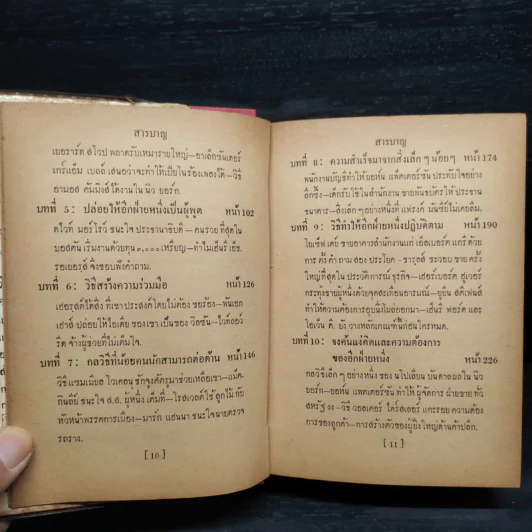 สารบาญ
เยอราร์ด สโวป พลาดรับเหมารายใหญ่—อาเล็กซันเดอร์
เกร์แฮ็ม เบลล์ เสนอว่าจะทำให้เปียโนร้องเพลงได้—วิธี
อามอส คัมมิงส์ ได้งานใน นิว ยอร์ก.
บทที่ 5 : ปล่อยให้อีกฝ่ายหนึ่งเป็นผู้พูด หน้า 102
ดไวท์ มอร์โรว์ ชนะใจ ประธานาธิบดี—คนรวย ที่สุดใน
บอสตัน เริ่มงานด้วยทุน ๓,๐๐๐ เหรียญ—ทำไมเฮ็นรี่ เอ็ช.
รอเยอรส์ จึงชอบฟังคำถาม.
บทที่ 6 : วิธีสร้างความร่วมมือ หน้า 126
เฮอรสต์ได้สิ่ง ที่เขาประสงค์โดยไม่ต้อง ขอร้อง—พันเอก
เฮาส์ ปล่อยให้ไอเดีย ของเขา เป็นของ วิลซัน—ไวท์ลอว์
รีด จ้างผู้ช่วยที่ไม่เต็มใจ.
บทที่ 7 : กลวิธีที่น้อยคนนักสามารถต่อต้าน หน้า 146
วิธี แซมเมียล โวเคลน ชักจูงศัตรูมาช่วยเหลือเขา—แม็ค-
กินลีย์ ชนะใจ ส.ส. ผู้หนึ่ง เต็มที่—โรสเวลต์ใช้ ลูกไม้ กับ
หัวหน้าพรรคการเมือง—มาร์ก แฮนนา ชนะใจนายตรวจ
รถราง.
[ 10 ]
สารบาญ
บทที่ 8 : ความสำเร็จมาจากสิ่งเล็ก ๆ น้อย ๆ หน้า 174
พนักงานบัญชีทำให้ ยอห์น แพตเตอร์ซัน ประทับใจอย่าง
ลึกซึ้ง—เด็กรับใช้ ในสำนักงาน ขายพันธบัตร ให้ ประธาน
ธนาคาร—สิ่งเล็ก ๆ อย่างหนึ่งที่ แฟรงก์ มันซีย์ไม่เคยลืม.
บทที่ 9 : วิธีทำให้อีกฝ่ายหนึ่งปฏิบัติตาม หน้า 190
โยเซ็ฟ เดย์ ขายอาคารสำนักงานแก่ เอ็ลเบอร์ต แกรี่ ด้วย
การ ตั้ง คำ ถาม สอง ประโยค - ชารลส์ ชะวอบ ขาย ครั้ง
ใหญ่ที่สุด ใน ประวัติการณ์ ธุรกิจ—เฮอร์เบอร์ต ฮูเวอร์
กระทุ้งขายผู้หนึ่งด้วยจุดสะเทือนอารมณ์—ยูยีน สตีเฟนส์
ทำให้ความต้องการอุบนั่งไผ่ออกมา—เฮ็นรี่ ฟอร์ด และ
โอเว็น ดี. ยัง วางหลักเกณฑ์นี้ก่อน ใครหมด.
บทที่ 10 : จงค้นแง่คิดและความต้องการ
ของอีกฝ่ายหนึ่ง หน้า 226
กลวิธีเล็ก ๆ อย่างหนึ่ง ของ นโปเลียน บันดาลผลใน นิว
ยอร์ก—ยอห์น แพตเตอร์ซัน ทำให้ ผู้จัดการ ฝ่ายขาย ทั่ว
สหรัฐ งง—วิธี วอลเตอร์ ไคร้สเลอร์ แกะรอย ความต้อง
การของลูกค้า—การสร้างตัวของผู้ยิ่งใหญ่ด้านค้าปลีก.
[ 11 ]